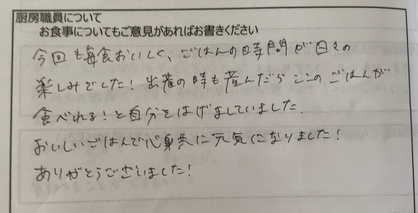 厨房職員について
お食事についてもご意見があればお書きください
今回も毎食おいしく、ごはんの時間が日々の
楽しみでした！出産の時も産んだらここのごはんが
食べれる！と自分をはげましていました。
おいしいごはんで心身共に元気になりました！
ありがとうございました！